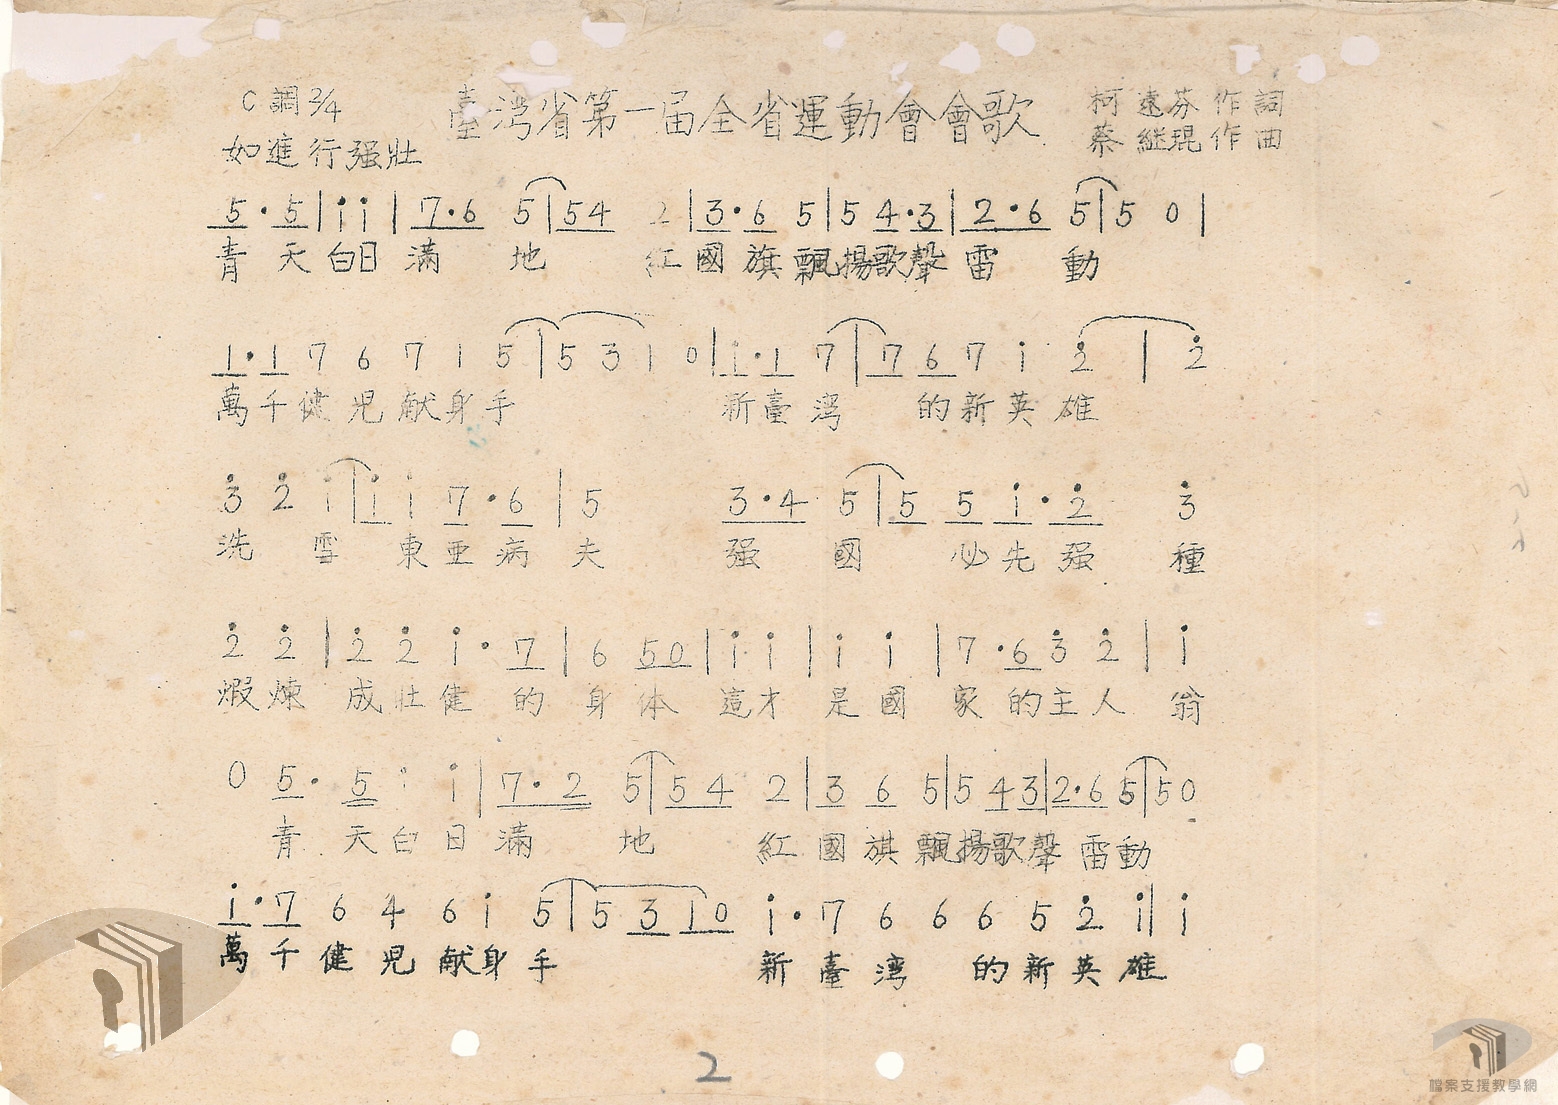 C調2/4 臺灣省第一屆全省運動會會歌 柯遠芬作詞
如進行强壯 蔡継琨作曲
5·5|i̇i̇|7·6 5|54 2|3·6 5|5 4·3|2·6 5|5 0|
青天白日滿地紅國旗飄揚歌聲雷動
1·1 7 6 7 1 5|5 3 1 0|1·1 7|7 6 7 i̇ 2̇|2̇
萬千健児献身手 新臺湾的新英雄
3̇ 2̇ i̇|i̇ i̇ 7·6|5 3·4 5|5 5 i̇·2̇ 3̇
洗雪東亜病夫 强國必先强種
2̇ 2̇|2̇ 2̇ i̇·7|6 50|i̇ i̇|i̇ i̇|7·6 3̇ 2̇|i̇
煅煉成壮健的身体這才是國家的主人翁
0 5·5 i̇ i̇|7·2 5|54 2|3 6 5|5 43|2·6 5|50
青天白日滿地紅國旗飄揚歌聲雷動
i̇·7 6 4 6 i̇ 5|5 3 1 0 i̇·7 6 6 6 5 2̇ i̇|i̇
萬千健児献身手 新臺湾的新英雄
2
檔案支援教學網